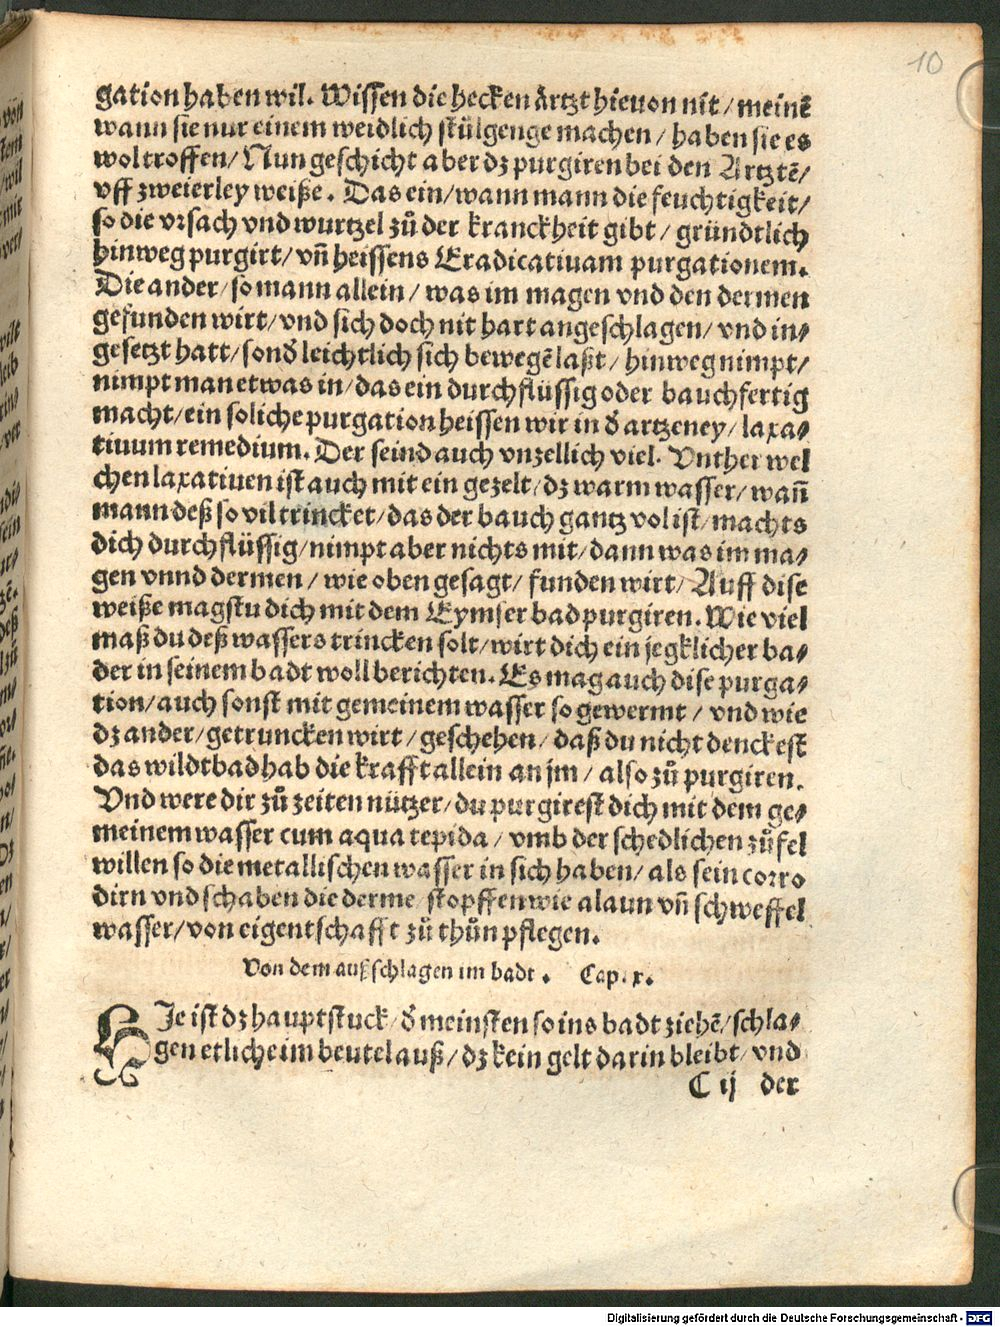 10
gation haben wil. Wissen die hecken ärtzt hieuon nit / meinē
wann sie nur einem weidlich stülgenge machen / haben sie es
wol troffen / Nun geschicht aber dz purgiren bei den Artztē /
vff zweierley weiße. Das ein / wann mann die feuchtigkeit /
so die vrsach vnd wurtzel zů der kranckheit gibt / gründtlich
hinweg purgirt / vn̄ heissens Eradicatiuam purgationem.
Die ander / so mann allein / was im magen vnd den dermen
gefunden wirt / vnd sich doch nit hart angeschlagen / vnd in⸗
gesetzt hatt / sonđ leichtlich sich bewegē laßt / hinweg nimpt /
nimpt man etwas in / das ein durchflüssig oder bauchfertig
macht / ein soliche purgation heissen wir in đ artzeney / laxa⸗
tiuum remedium. Der seind auch vnzellich viel. Vnther wel
chen laxatiuen ist auch mit ein gezelt / dz warm wasser / wan̄
mann deß so vil trincket / das der bauch gantz vol ist / machts
dich durchflüssig / nimpt aber nichts mit / dann was im ma⸗
gen vnnd dermen / wie oben gesagt / funden wirt / Auff dise
weiße magstu dich mit dem Eymser bad purgiren. Wie viel
maß du deß wassers trincken solt / wirt dich ein jegklicher ba⸗
der in seinem badt woll berichten. Es mag auch dise purga⸗
tion / auch sonst mit gemeinem wasser so gewermt / vnd wie
dz ander / getruncken wirt / geschehen / daß du nicht denckest
das wildtbad hab die krafft allein an jm / also zů purgiren.
Vnd were dir zů zeiten nützer / du purgirest dich mit dem ge⸗
meinem wasser cum aqua tepida / vmb der schedlichen zůfel
willen so die metallischen wasser in sich haben / als sein corro
dirn vnd schaben die derme / stopffen wie alaun vn̄ schweffel
wasser / von eigentschafft zů thůn pflegen.
Von dem außschlagen im badt. Cap. x.
HJe ist dz hauptstuck / đ meinsten so ins badt ziehē / schla⸗
gen etliche im beutel auß / dz kein gelt darin bleibt / vnd
C ij der
Digitalisierung gefördert durch die Deutsche Forschungsgemeinschaft - DFG